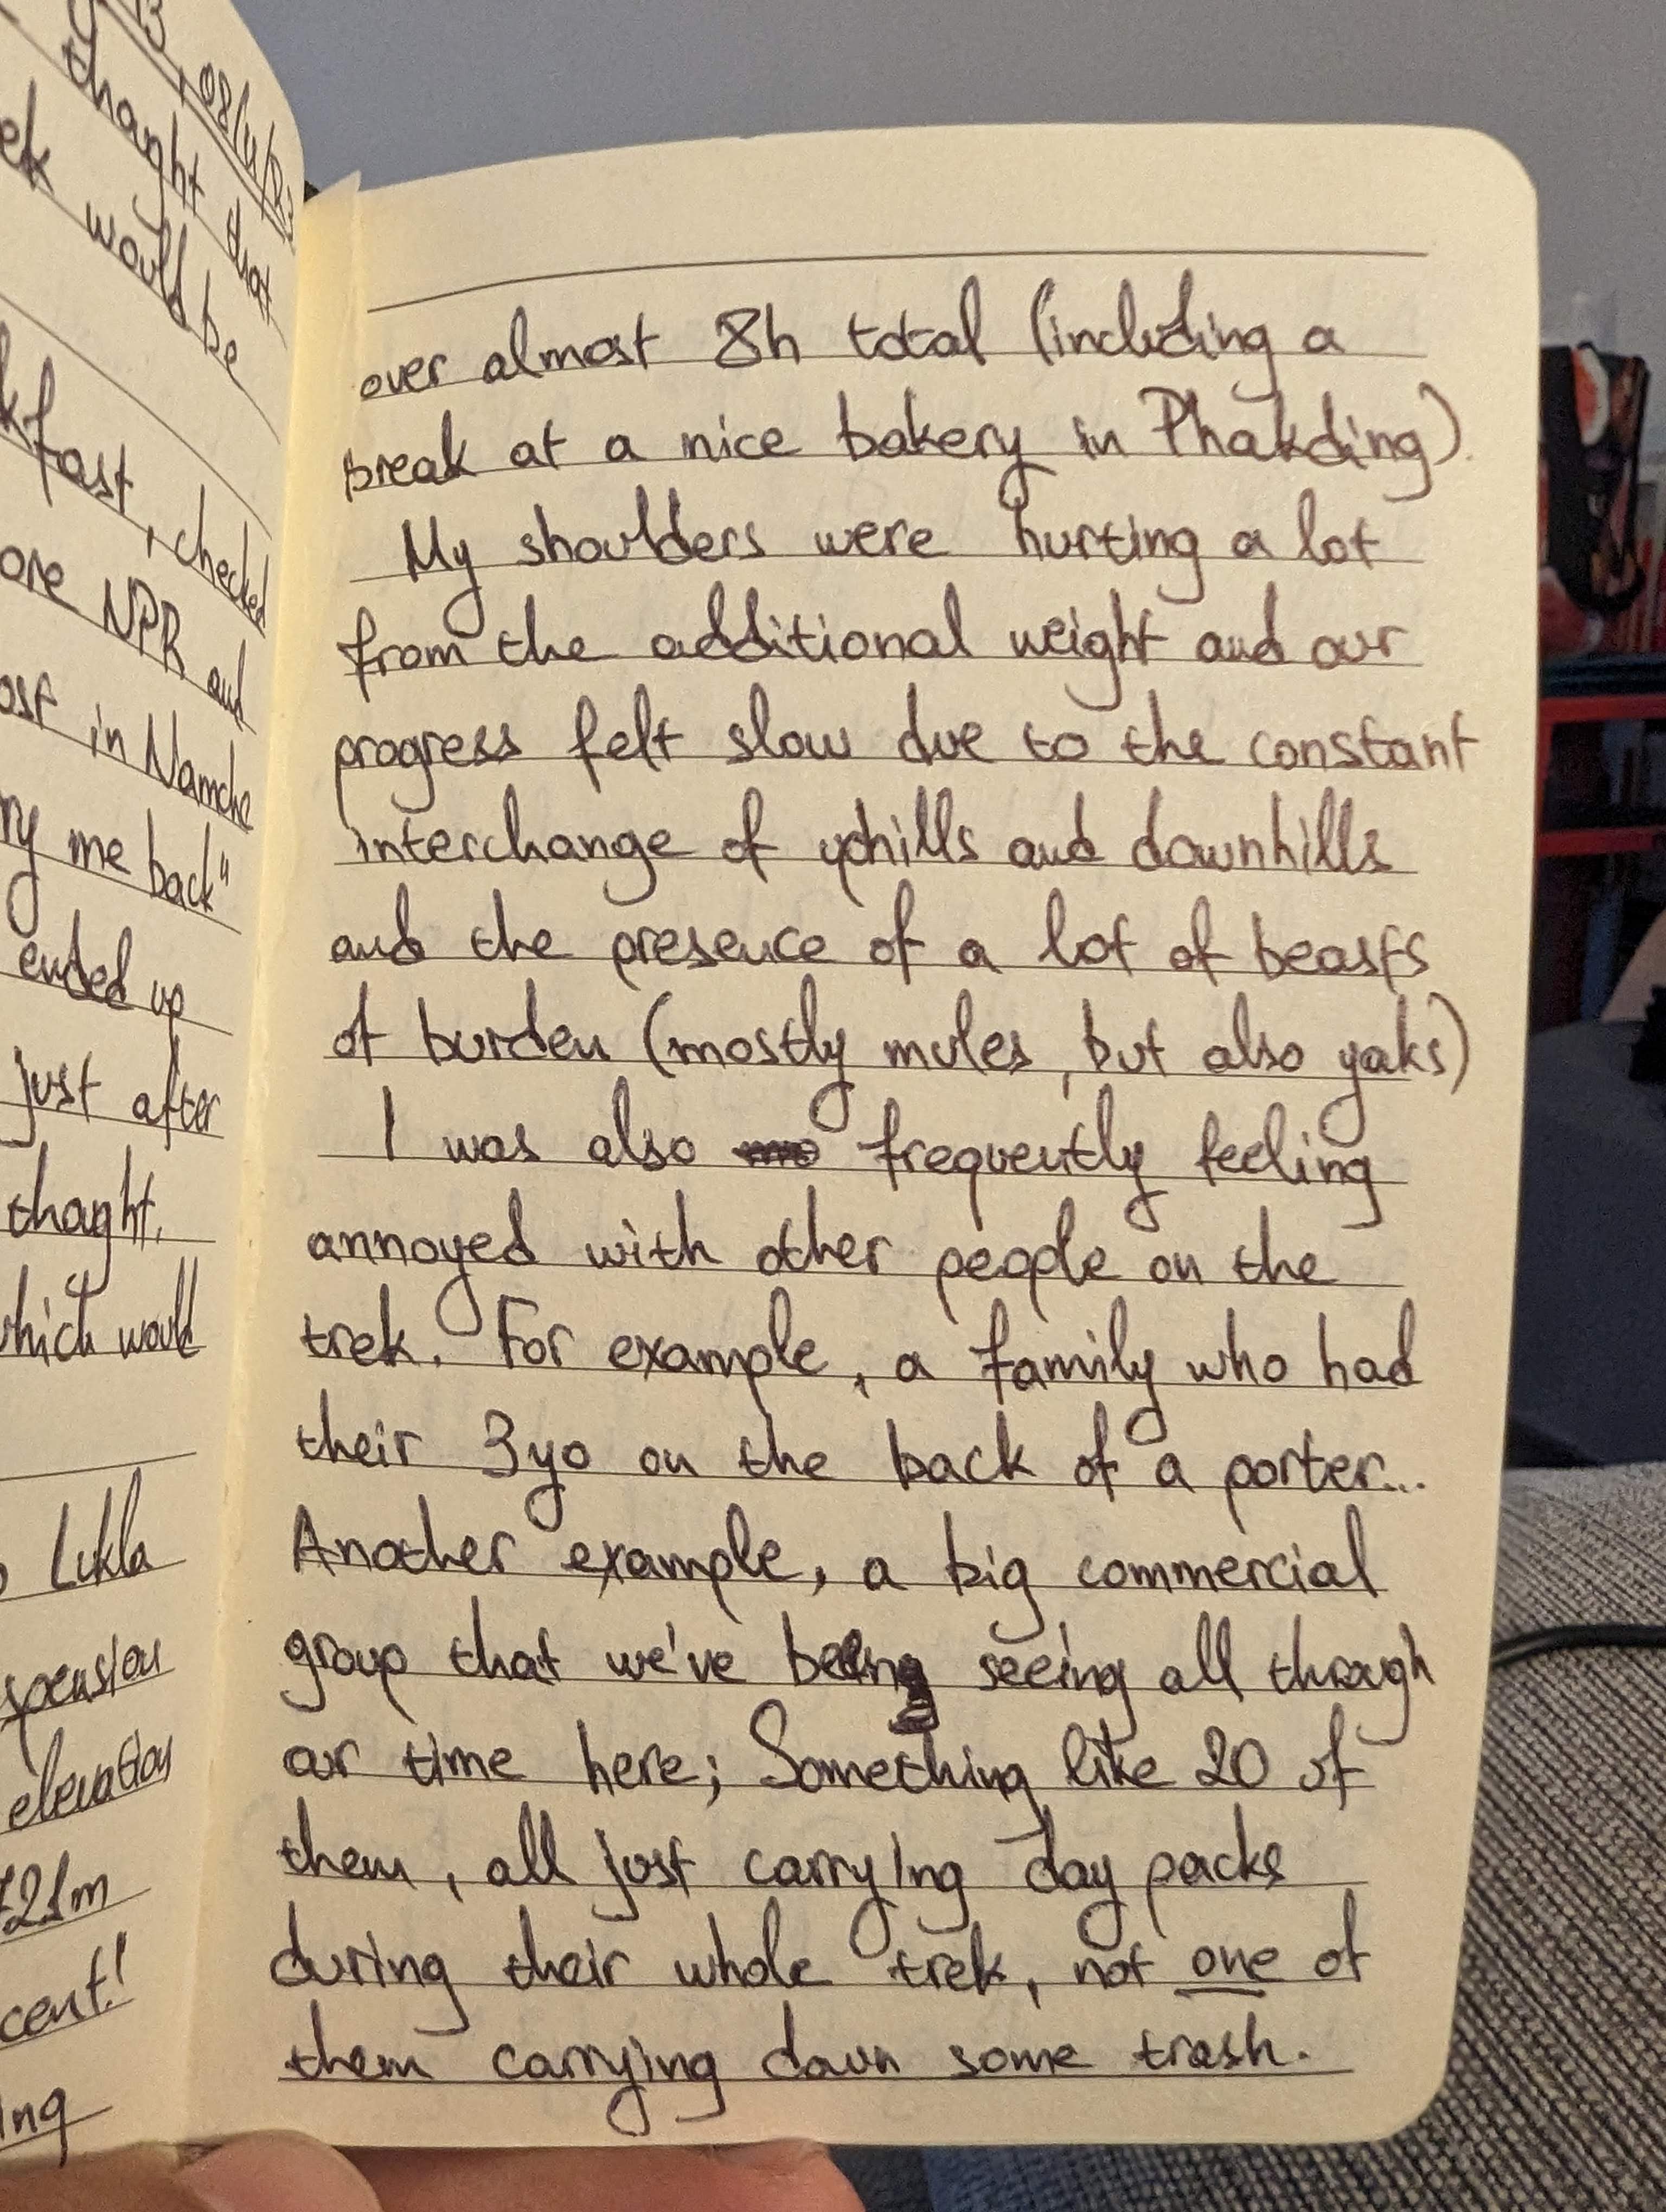 08/11/23
thought that
would be
fast, checked
ore NPR and
ost in Namche
ry me back"
ended up
just after
thought.
which would
Lukla
spension
elevation
721m
cent!
ing
over almost 8h total (including a
break at a nice bakery in Phakding).
My shoulders were hurting a lot
from the additional weight and our
progress felt slow due to the constant
interchange of uphills and downhills
and the presence of a lot of beasts
of burden (mostly mules, but also yaks)
I was also frequently feeling
annoyed with other people on the
trek. For example, a family who had
their 3yo on the back of a porter...
Another example, a big commercial
group that we've being seeing all through
our time here; Something like 20 of
them, all just carrying day packs
during their whole trek, not one of
them carrying down some trash.